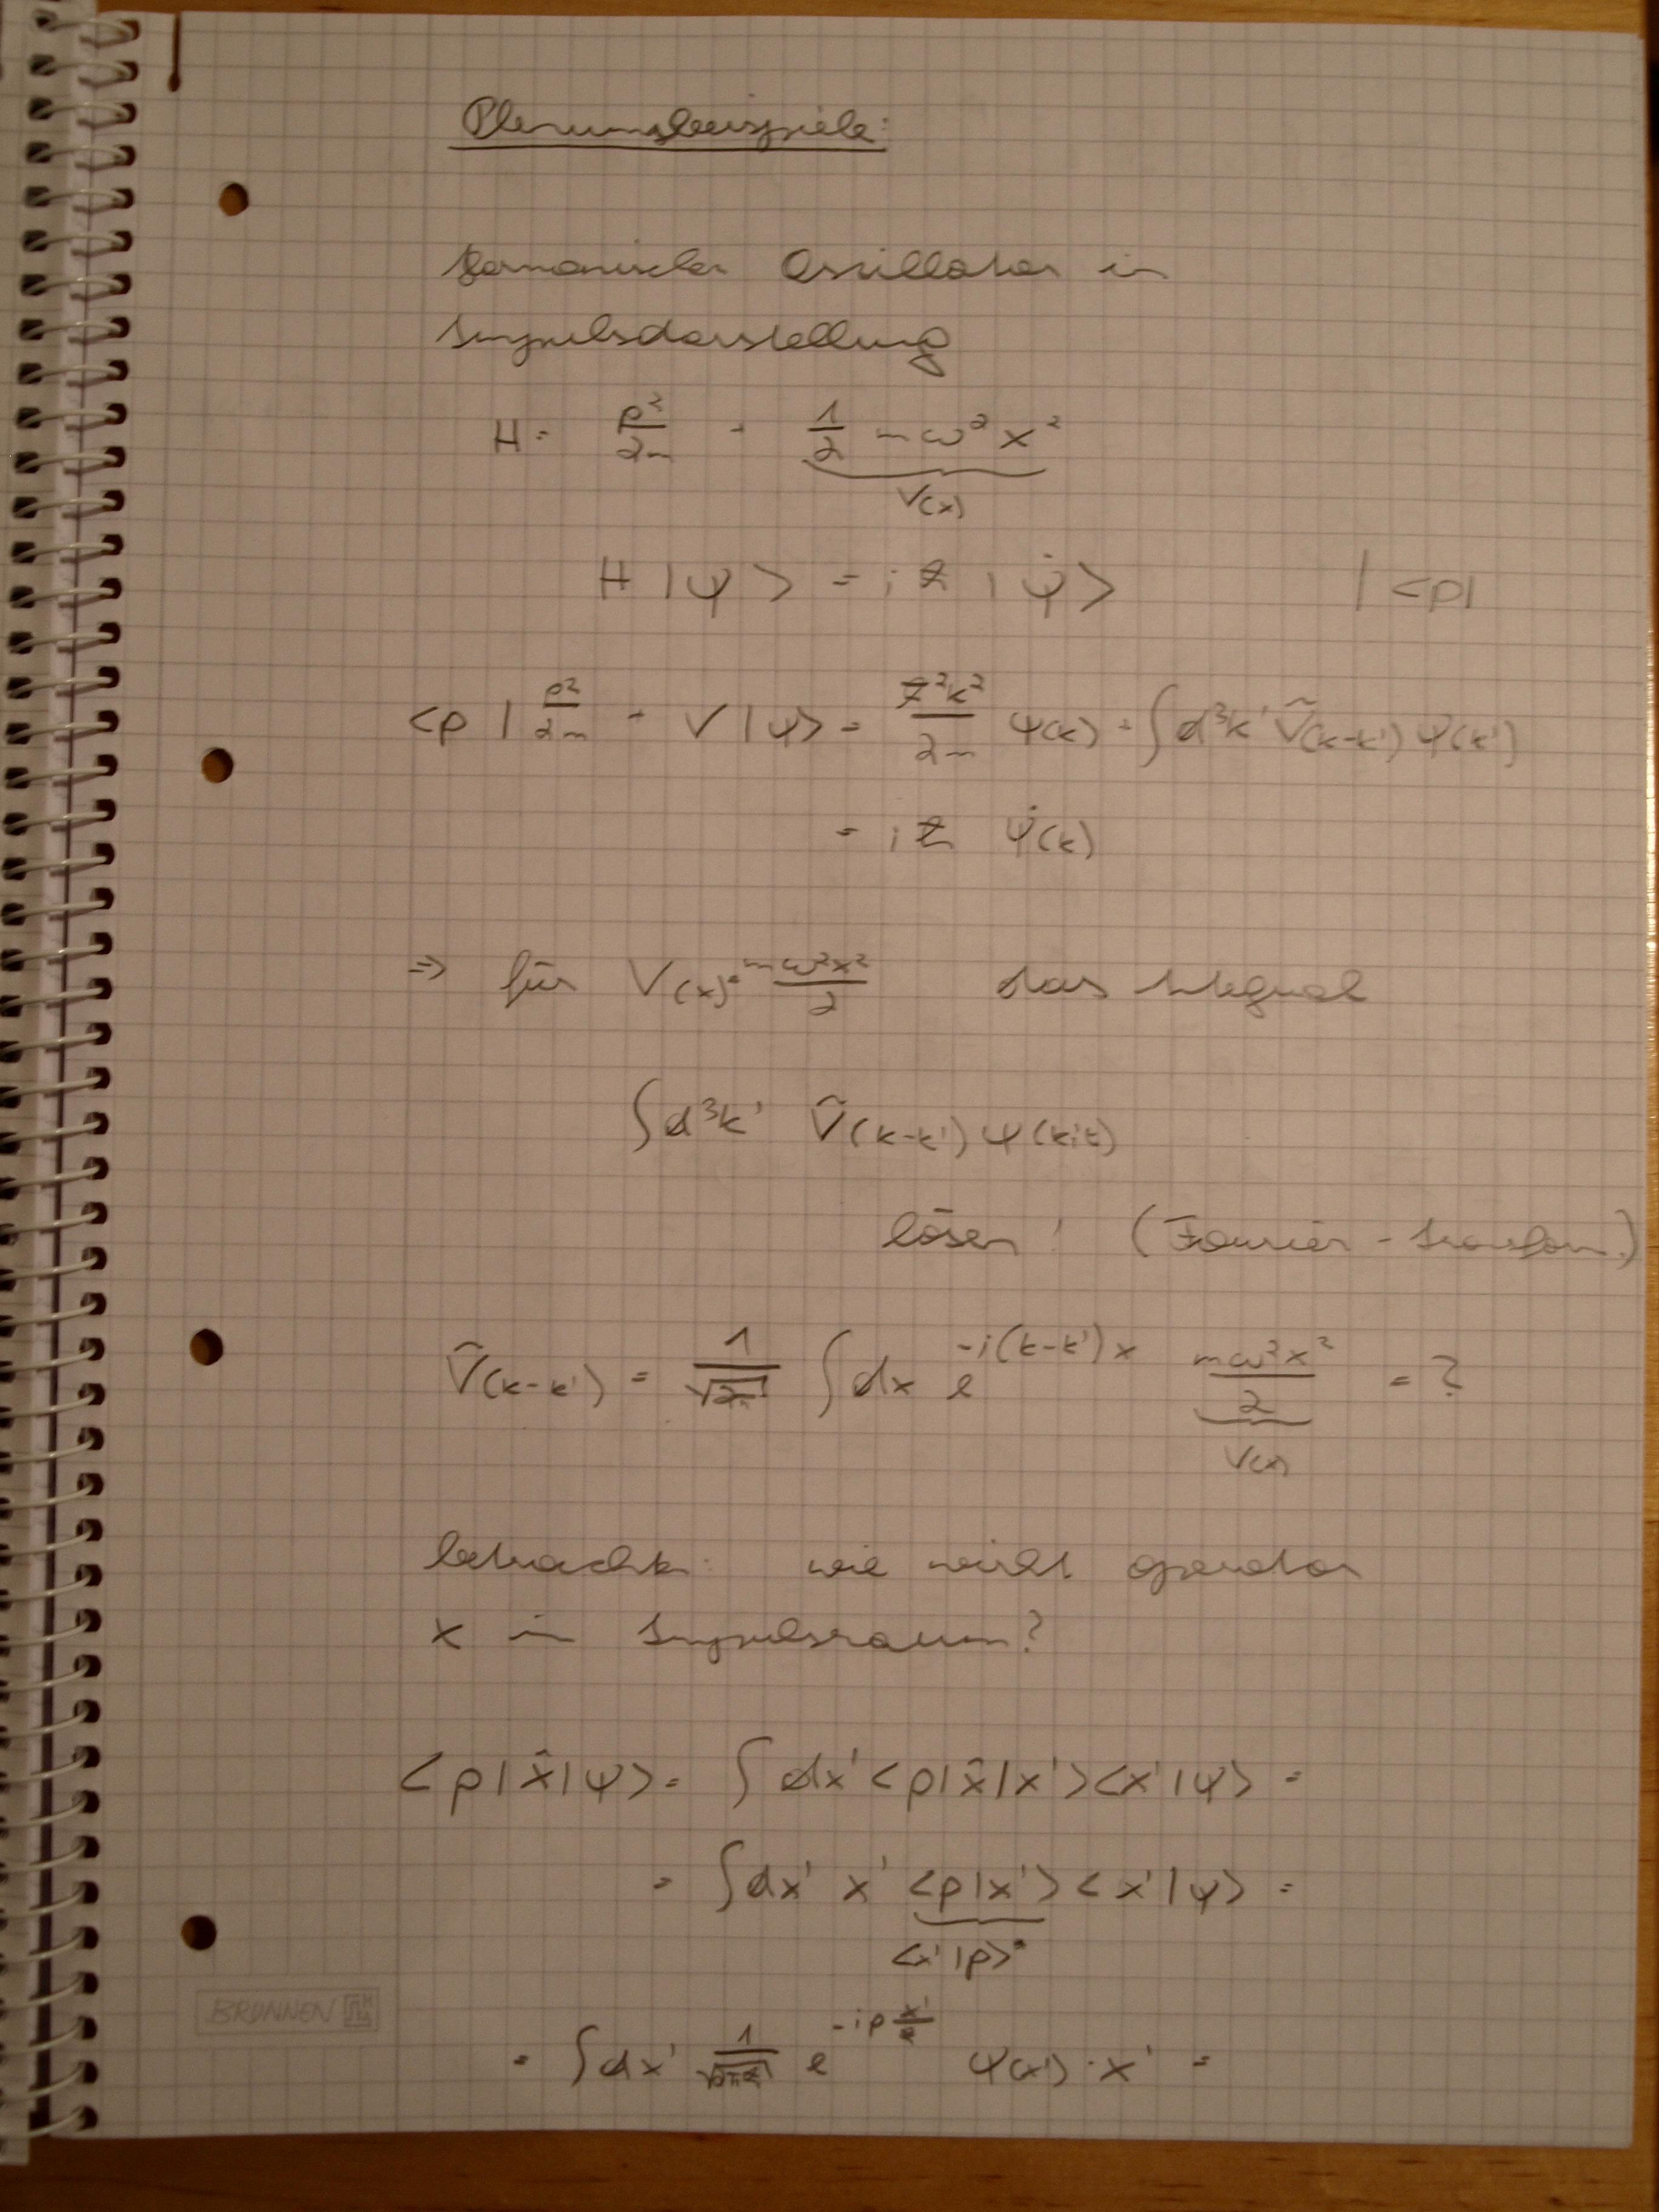 Plenumsbeispiele:
harmonischer Oszillator in
Impulsdarstellung
H = p²/2m + 1/2 mω²x²
V(x)
H |ψ> = iħ |ψ̇> | <p|
<p| p²/2m + V |ψ> = ħ²k²/2m ψ(k) + ∫d³k' Ṽ(k-k') ψ(k')
= iħ ψ̇(k)
⇒ für V(x) = mω²x²/2 das Integral
∫d³k' Ṽ(k-k') ψ(k',t)
lösen! (Fourier-Transform.)
Ṽ(k-k') = 1/√2π ∫dx e^{-i(k-k')x} mω²x²/2 = ?
V(x)
betrachte: wie wirkt operator
x in Impulsraum?
<p|x̂|ψ> = ∫dx' <p|x̂|x'><x'|ψ> =
= ∫dx' x' <p|x'><x'|ψ> =
<x'|p>*
= ∫dx' 1/√2πħ e^{-ip x'/ħ} ψ(x')·x' =
BRUNNEN